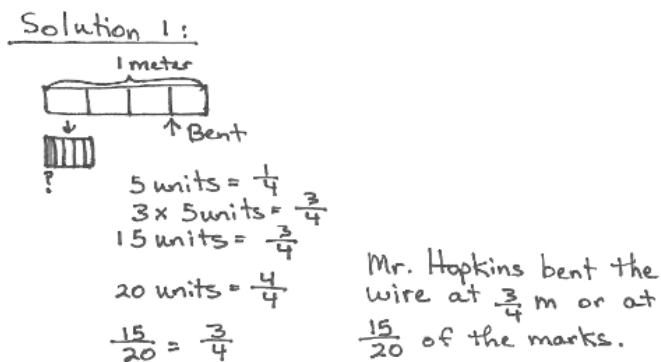 Solution 1:
1 meter
Bent
?
5 units = 1/4
3 x 5units = 3/4
15 units = 3/4
20 units = 4/4
15/20 = 3/4
Mr. Hopkins bent the
wire at 3/4 m or at
15/20 of the marks.